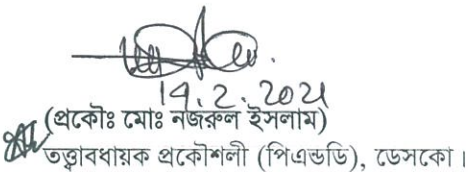 14.2.2021
(প্রকৌঃ মোঃ নজরুল ইসলাম)
তত্ত্বাবধায়ক প্রকৌশলী (পিএন্ডডি), ডেসকো।